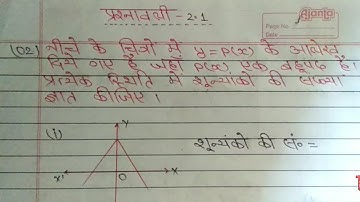 प्रश्नावली - 2.1
Ajanta
Page No.
Date
(02) नीचे के चित्रों में y = P(x) के आलेख
दिये गए हैं जहाँ P(x) एक बहुपद है।
प्रत्येक स्थिति में शून्यंको की संख्या
ज्ञात कीजिए।
(i)
Y
शून्यंको की सं० =
X'
O
X